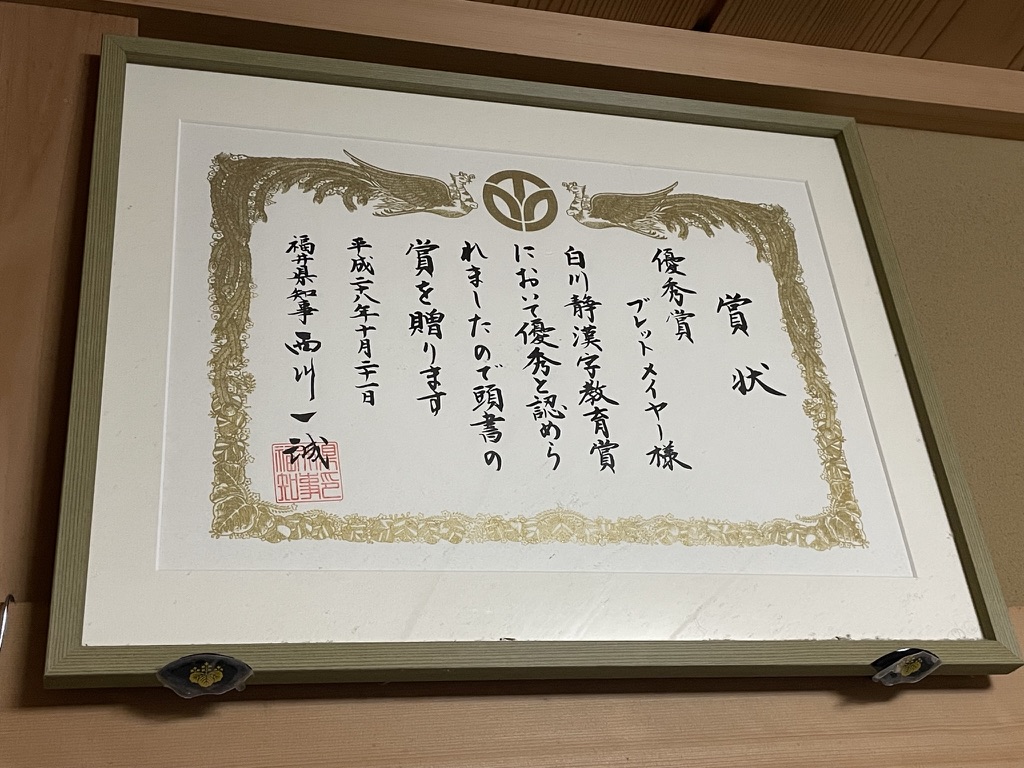 賞状
優秀賞
ブレットメイヤー様
白川静漢字教育賞
において優秀と認めら
れましたので頭書の
賞を贈ります
平成二十八年十月二十一日
福井県知事 西川一誠